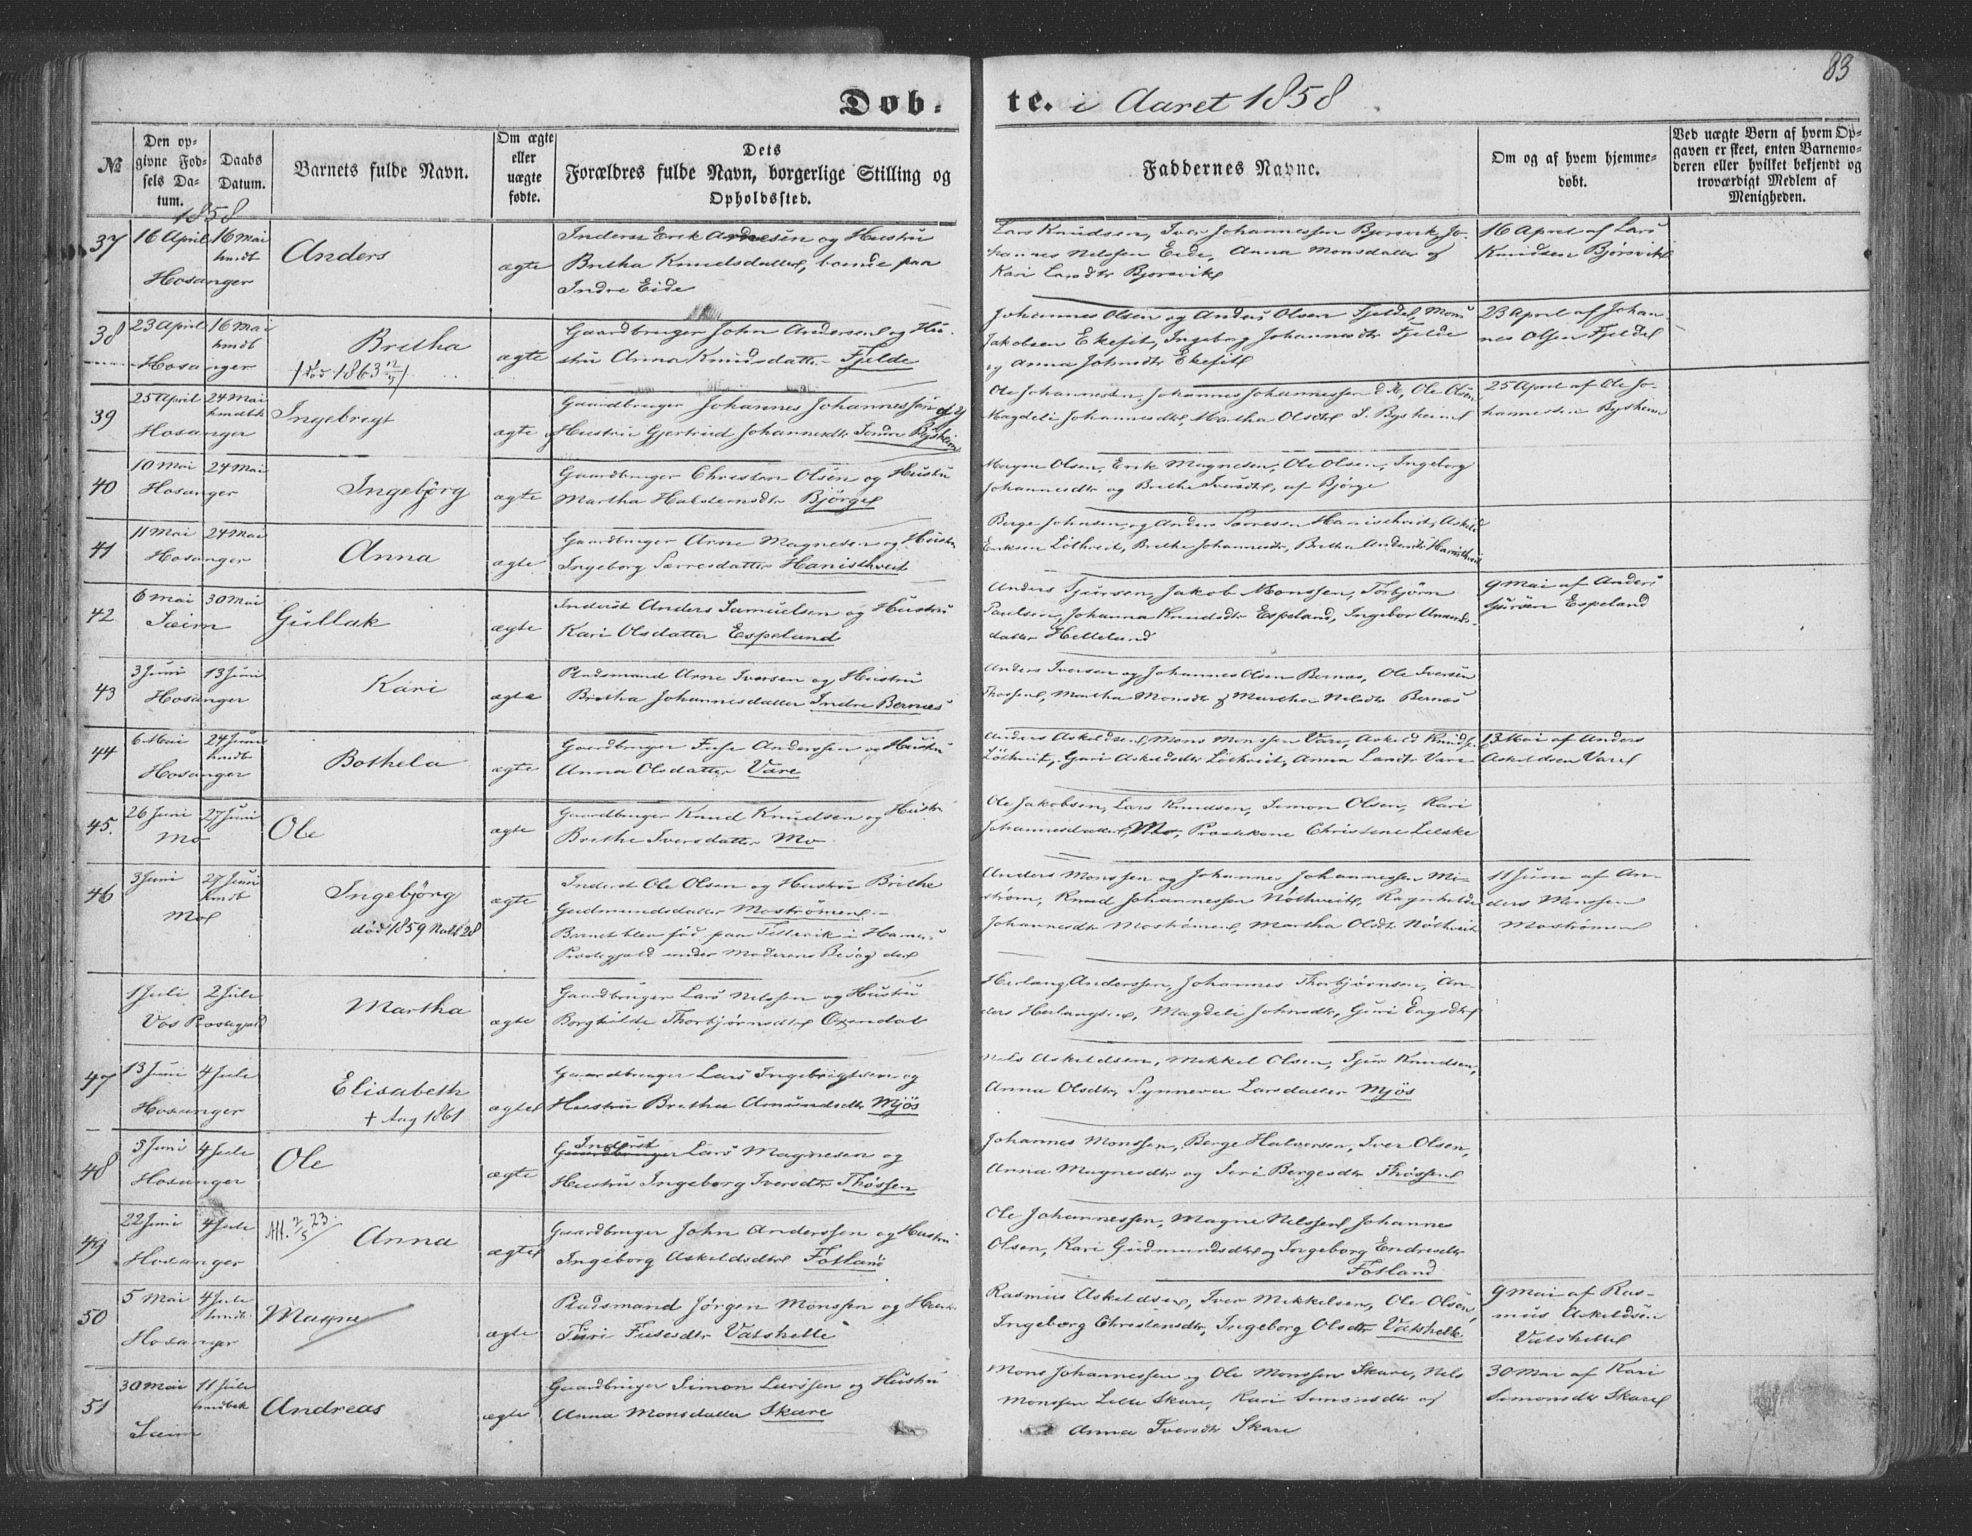 83
Døb-
te. i Aaret 1858
№
Den op-
givne Fød-
sels Da-
tum.
Daabs
Datum.
Barnets fulde Navn.
Om ægte
eller
uægte
fødte.
Dets
Forældres fulde Navn, borgerlige Stilling og
Opholdssted.
Faddernes Navne.
Om og af hvem hjemme-
døbt.
Ved uægte Børn af hvem Op-
gaven er skeet, enten Barnemo-
deren eller hvilket bekjendt og
troværdigt Medlem af
Menigheden.
1858
37
16 April
16 Mai
hmdt
Hosanger
Anders
ægte
Inderst Erik Arnesen og Hustru
Bretha Knudsdatter, boende paa
Indre Eide
Lars Knudsen, Iver Johannessen Bjorsvik, Jo-
hannes Nelssen Eide, Anna Monsdatter og
Kari Larsdtr Bjorsvik
16 April af Lars
Knudsen Bjørsvik
38
23 April
16 Mai
hmdt
Hosanger
Bretha
ægte
Gaardbruger John Andersen og Hu-
stru Anna Knudsdatter Fjelde
Johannes Olsen og Anders Olsen Fjelde, Mons
Jakobsen Ekeset, Ingeborg Johannesdtr Fjelde
og Anna Johnsdtr Ekeset
23 April af Johan-
nes Olsen Fjelde
39
25 April
24 Mai
Hosanger
Ingebregt
ægte
Gaardbruger Johannes Johannessen og
Hustru Gjertrud Johannesdtr Søndre Bysheim
Ole Johannesen, Johannes Johannessen d.æ., Ole Olsen
Magdeli Johannesdtr, Martha Olsdtr S. Bysheim
25 April af Ole Jo-
hannesen Bysheim
40
10 Mai
24 Mai
Hosanger
Ingebjørg
ægte
Gaardbruger Christen Olsen og Hustru
Martha Halstensdtr Bjørge
Magne Olsen, Erik Magnesen, Ole Olsen, Ingeborg
Johannesdtr og Brethe Iversdtr, af Bjørge
41
11 Mai
24 Mai
Hosanger
Anna
ægte
Gaardbruger Arne Magnesen og Hustru
Ingeborg Særresdatter Hanisthveit
Berge Johnsen og Anders Særresen Hanisthveit, Askild
Eriksen Løthveit, Brethe Johannesdtr, Bretha Andersdtr Hanisthveit
42
6 Mai
30 Mai
Sæim
Gullak
ægte
Inderst Anders Samuelsen og Hustru
Kari Olsdatter Espeland
Anders Sjursen, Jakob Monssen, Torbjørn
Paulsen, Johanna Knudsdtr Espeland, Ingebor Amunds-
datter Helleland
9 Mai af Anders
Sjursen Espeland
43
3 Juni
13 Juni
Hosanger
Kari
ægte
Pladsmand Arne Iversen og Hustru
Bretha Johannesdatter Indre Bernes
Anders Iversen og Johannes Olsen Bernes, Ole Iversen
Thossen, Martha Monsdtr & Martha Nelsdtr Bernes
44
6 Mai
24 Juni
hmdt
Hosanger
Bothela
ægte
Gaardbruger Fese Anderssen og Hustru
Anna Olsdatter Vare
Anders Askeldsen, Mons Monssen Vare, Askeld Knudsen
Løthveit, Guri Askeldsdtr Løthveit, Anna Larsdtr Vare
13 Mai af Anders
Askeldsen Vare
45.
26 Juni
27 Juni
Mo
Ole
ægte
Gaardbruger Knud Knudsen og Hustru
Brethe Iversdatter Mo
Ole Jakobsen, Lars Knudsen, Simon Olsen, Kari
Johannesdatter, Mo, Præstekone Christene Lelske
46
3 Juni
27 Juni
hmdt
Mo
Ingebjørg
død 1859
ægte
Inderst Ole Olsen og Hustru Brithe
Gudmundsdatter Mostrømen
Barnet blev fød paa Tettevik i Hammers
Præstegjeld under Moderens Besøg der
Anders Monssen og Johannes Johannessen Mo-
strøm, Knud Johannessen Nøthveit, Ragnhilde
Johannesdtr Mostrømen, Martha Olsdtr Nøthveit
11 Juni af An-
ders Monssen
Mostrømen
1 Juli
2 Jule
Vos Præstegjeld
Martha
ægte
Gaardbruger Lars Nelssen og Hustru
Borghilde Thorbjørnsdtr Oxendal
Herlaug Anderssen, Johannes Thorbjørnsen, An-
ders Herlaugsen, Magdeli Johnsdtr, Guri
47
13 Juni
4 Jule
Hosanger
Elisabeth
† Aug 1861
ægte
Gaardbruger Lars Ingebrigtsen og
Hustru Bretha Amundsdtr Mjøs
Nels Askeldsen, Mikkel Olsen, Sjur Knudsen,
Anna Olsdtr, Synneva Larsdatter Mjøs
48
3 Juni
4 Jule
Hosanger
Ole
ægte
Inderst
Gaardbruger Lars Magnesen og
Hustru Ingeborg Iversdtr Thossen
Johannes Monssen, Berge Halversen, Iver Olsen,
Anna Magnesdtr og Seri Bergesdtr Thossen
49
22 Juni
4 Jule
Hosanger
Att. 2/5 23.
Anna
ægte
Gaardbruger John Anderssen og Hustru
Ingeborg Askeldsdtr Fotland
Ole Johannessen, Magne Nelssen, Johannes
Olsen, Kari Gudmundsdtr og Ingeborg Endresdtr
Fotland
50
5 Mai
4 Jule
hmdt
Hosanger
Magne
ægte
Pladsmand Jørgen Monssen og Hustru
Turi Fusesdtr Vatshelle
Rasmus Askeldsen, Iver Mekkelsen, Ole Olsen,
Ingeborg Christensdtr, Ingeborg Olsdtr Vatshelle
9 Mai af Ras-
mus Askeldsen
Vatshelle
51
30 Mai
11 Jule
Sæim
Andreas
ægte
Gaardbruger Simon Larssen og Hustru
Anna Monsdatter Skare
Mons Johannessen og Ole Monssen Skare, Nels
Monssen Lelle Skare, Kari Simonsdtr og
Anna Iversdtr Skare
30 Mai af Kari
Simonsdtr Skare